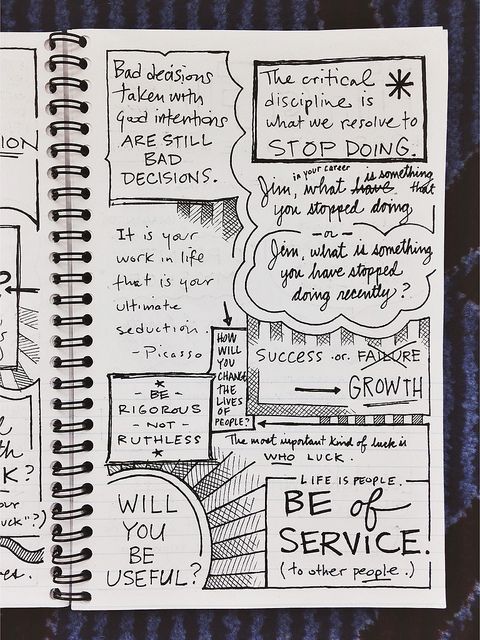 Bad decisions
taken with
good intentions
ARE STILL
BAD
DECISIONS.
The critical
discipline is
what we resolve to
STOP DOING.
in your career
Jim, what have is something that
you stopped doing
- or -
Jim, what is something
you have stopped
doing recently?
It is your
work in life
that is your
ultimate
seduction.
- Picasso
HOW
WILL
YOU
CHANGE
THE
LIVES
OF
PEOPLE?
SUCCESS or FAILURE
GROWTH
- BE -
RIGOROUS
- NOT -
RUTHLESS
The most important kind of luck is
WHO LUCK.
WILL
YOU
BE
USEFUL?
LIFE IS PEOPLE.
BE of
SERVICE.
(to other people.)
ION
?
K?
uck"?)